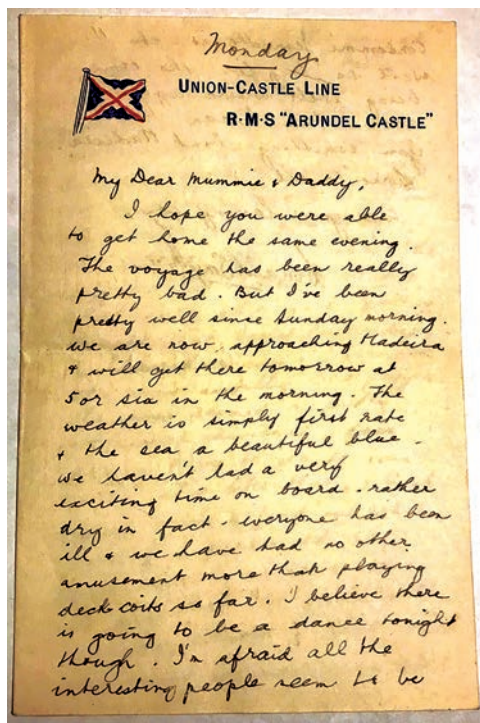 Monday
UNION-CASTLE LINE
R·M·S "ARUNDEL CASTLE"
My Dear Mummie & Daddy,
I hope you were able
to get home the same evening.
The voyage has been really
pretty bad. But I've been
pretty well since Sunday morning.
We are now approaching Madeira
& will get there tomorrow at
5 or six in the morning. The
weather is simply first rate
& the sea a beautiful blue.
We haven't had a very
exciting time on board - rather
dry in fact. everyone has been
ill & we have had no other
amusement more than playing
deck coits so far. I believe there
is going to be a dance tonight
though. I'm afraid all the
interesting people seem to be